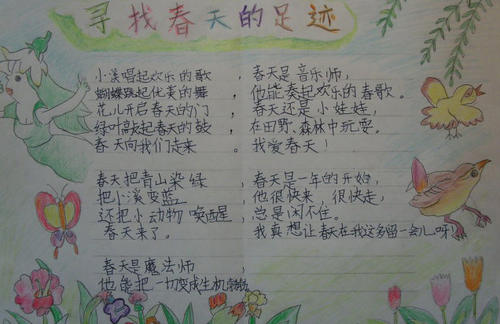 寻找春天的足迹
小溪唱起欢乐的歌，
蝴蝶跳起优美的舞，
花儿开启春天的门，
绿叶敲起春天的鼓，
春天向我们走来。
春天把青山染绿，
把小溪变蓝，
还把小动物唤醒，
春天来了。
春天是魔法师，
他能把一切变成生机勃勃
春天是音乐师，
他能奏起欢乐的春歌。
春天还是小娃娃，
在田野、森林中玩耍。
我爱春天！
春天是一年的开始，
他很快来，很快走，
总是闲不住。
我真想让春天在我这多留一会儿呀！